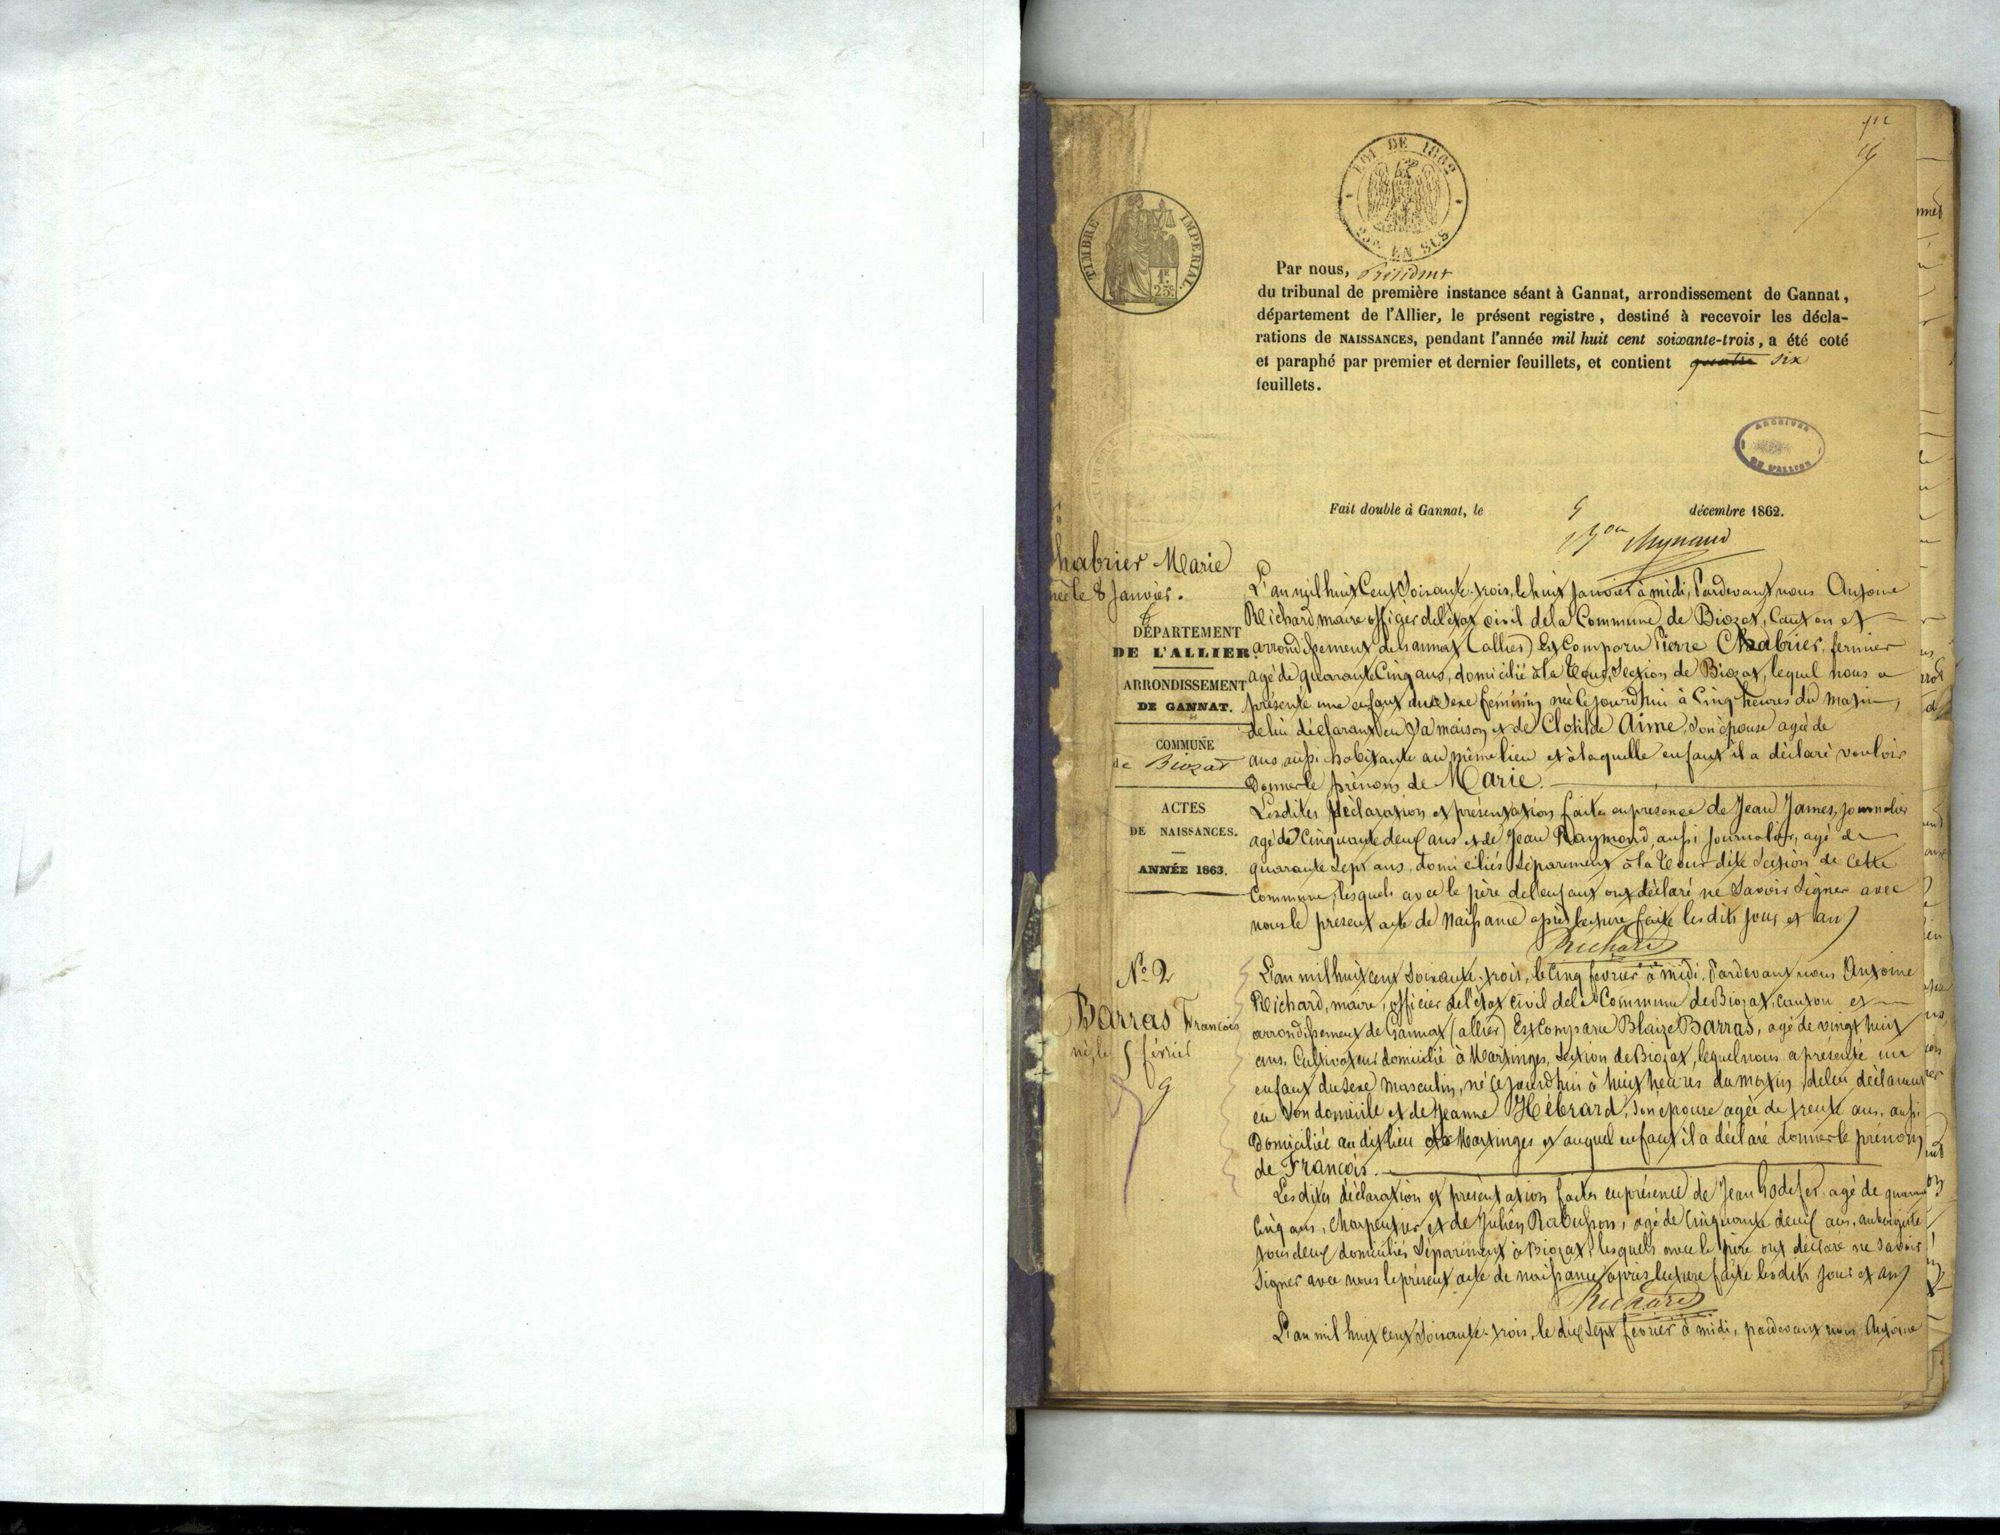 LOI DE 1862
EN SUS
TIMBRE IMPERIAL.
1F.
25c.
Par nous, Président
du tribunal de première instance séant à Gannat, arrondissement de Gannat,
département de l'Allier, le présent registre, destiné à recevoir les décla-
rations de NAISSANCES, pendant l'année mil huit cent soixante-trois, a été coté
et paraphé par premier et dernier feuillets, et contient quatre six
feuillets.
ARCHIVES
DE L'ALLIER
Fait double à Gannat, le 5 décembre 1862.
habrier Marie
née le 8 Janvier.
DÉPARTEMENT
DE L'ALLIER.
ARRONDISSEMENT
DE GANNAT.
COMMUNE
de Biozat
ACTES
DE NAISSANCES.
ANNÉE 1863.
L'an mil huit Cent Soixante-trois, le huit Janvier à midi, Pardevant nous Antoine
Richard, maire officier de l'état civil de la Commune de Biozat, Canton et
arrondissement de Gannat (allier) Est Comparu Pierre Chabrier, fermier
agé de quarante Cinq ans, domicilié à la Cour, Section de Biozat, lequel nous a
présenté une enfant du Sexe féminin née Cejourdhui à Cinq heures du matin,
de lui déclarant en Sa maison et de Clotilde Aime, Son épouse agée de
ans, aussi habitante au même lieu et à laquelle enfant il a déclaré vouloir
Donner le prénom de Marie.
Lesdites déclaration et présentation faites en présence de Jean James, journalier
agé de Cinquante deux ans et de Jean Raymond, aussi journalier, agé de
quarante Sept ans, domiciliés Séparément à la Cour dite Section de Cette
Commune, lesquels avec le père de l'enfant ont déclaré ne Savoir Signer avec
nous le présent acte de Naissance après lecture faite les dits jour et an
Richard
No 2
Barras François
né le 5 février
L'an mil huit cent Soixante-trois, le Cinq février à midi, Pardevant nous Antoine
Richard, maire, officier de l'état Civil de la Commune de Biozat, Canton et
arrondissement de Gannat (allier) Est Comparu Blaize Barras, agé de vingt huit
ans, Cultivateur domicilié à Martinges, Section de Biozat, lequel nous a présenté un
enfant du Sexe masculin, né Cejourdhui à huit heures du matin, de lui déclarant
en Son domicile et de Jeanne Hébrard, Son épouse agée de trente ans, aussi
Domiciliée au dit lieu de Martinges et auquel enfant il a déclaré donner le prénom
de François.
Lesdites déclaration et présentation faites en présence de Jean Godefer, agé de quarante
Cinq ans, Charpentier et de Julien Rabusson, agé de Cinquante deux ans, aubergiste
tous deux domiciliés Séparément à Biozat, lesquels avec le père ont déclaré ne Savoir
Signer avec nous le présent acte de naissance après lecture faite les dits jour et an
Richard
L'an mil huit cent Soixante-trois, le dix Sept février à midi, pardevant nous Antoine